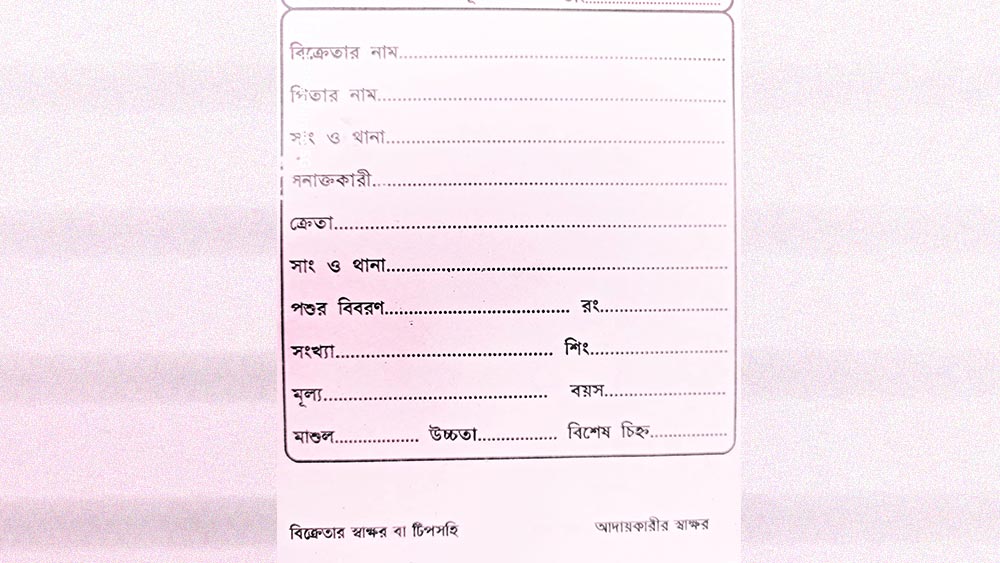 বিক্রেতার নাম
পিতার নাম
সাং ও থানা
সনাক্তকারী
ক্রেতা
সাং ও থানা
পশুর বিবরণ রং
সংখ্যা শিং
মূল্য বয়স
মাশুল উচ্চতা বিশেষ চিহ্ন
বিক্রেতার স্বাক্ষর বা টিপসহি আদায়কারীর স্বাক্ষর